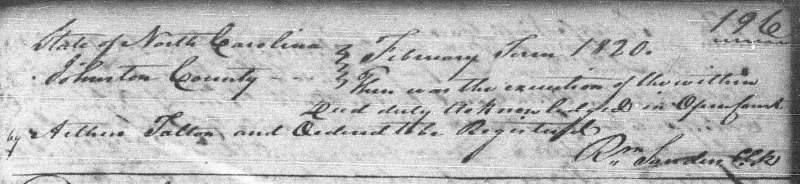 196
State of North Carolina } February Term 1820.
Johnston County - - } Then was the execution of the within
Deed duly Acknowledged in Open Court
by Arthur Talton and Ordered to be Registered
Rn. Sanders Clk